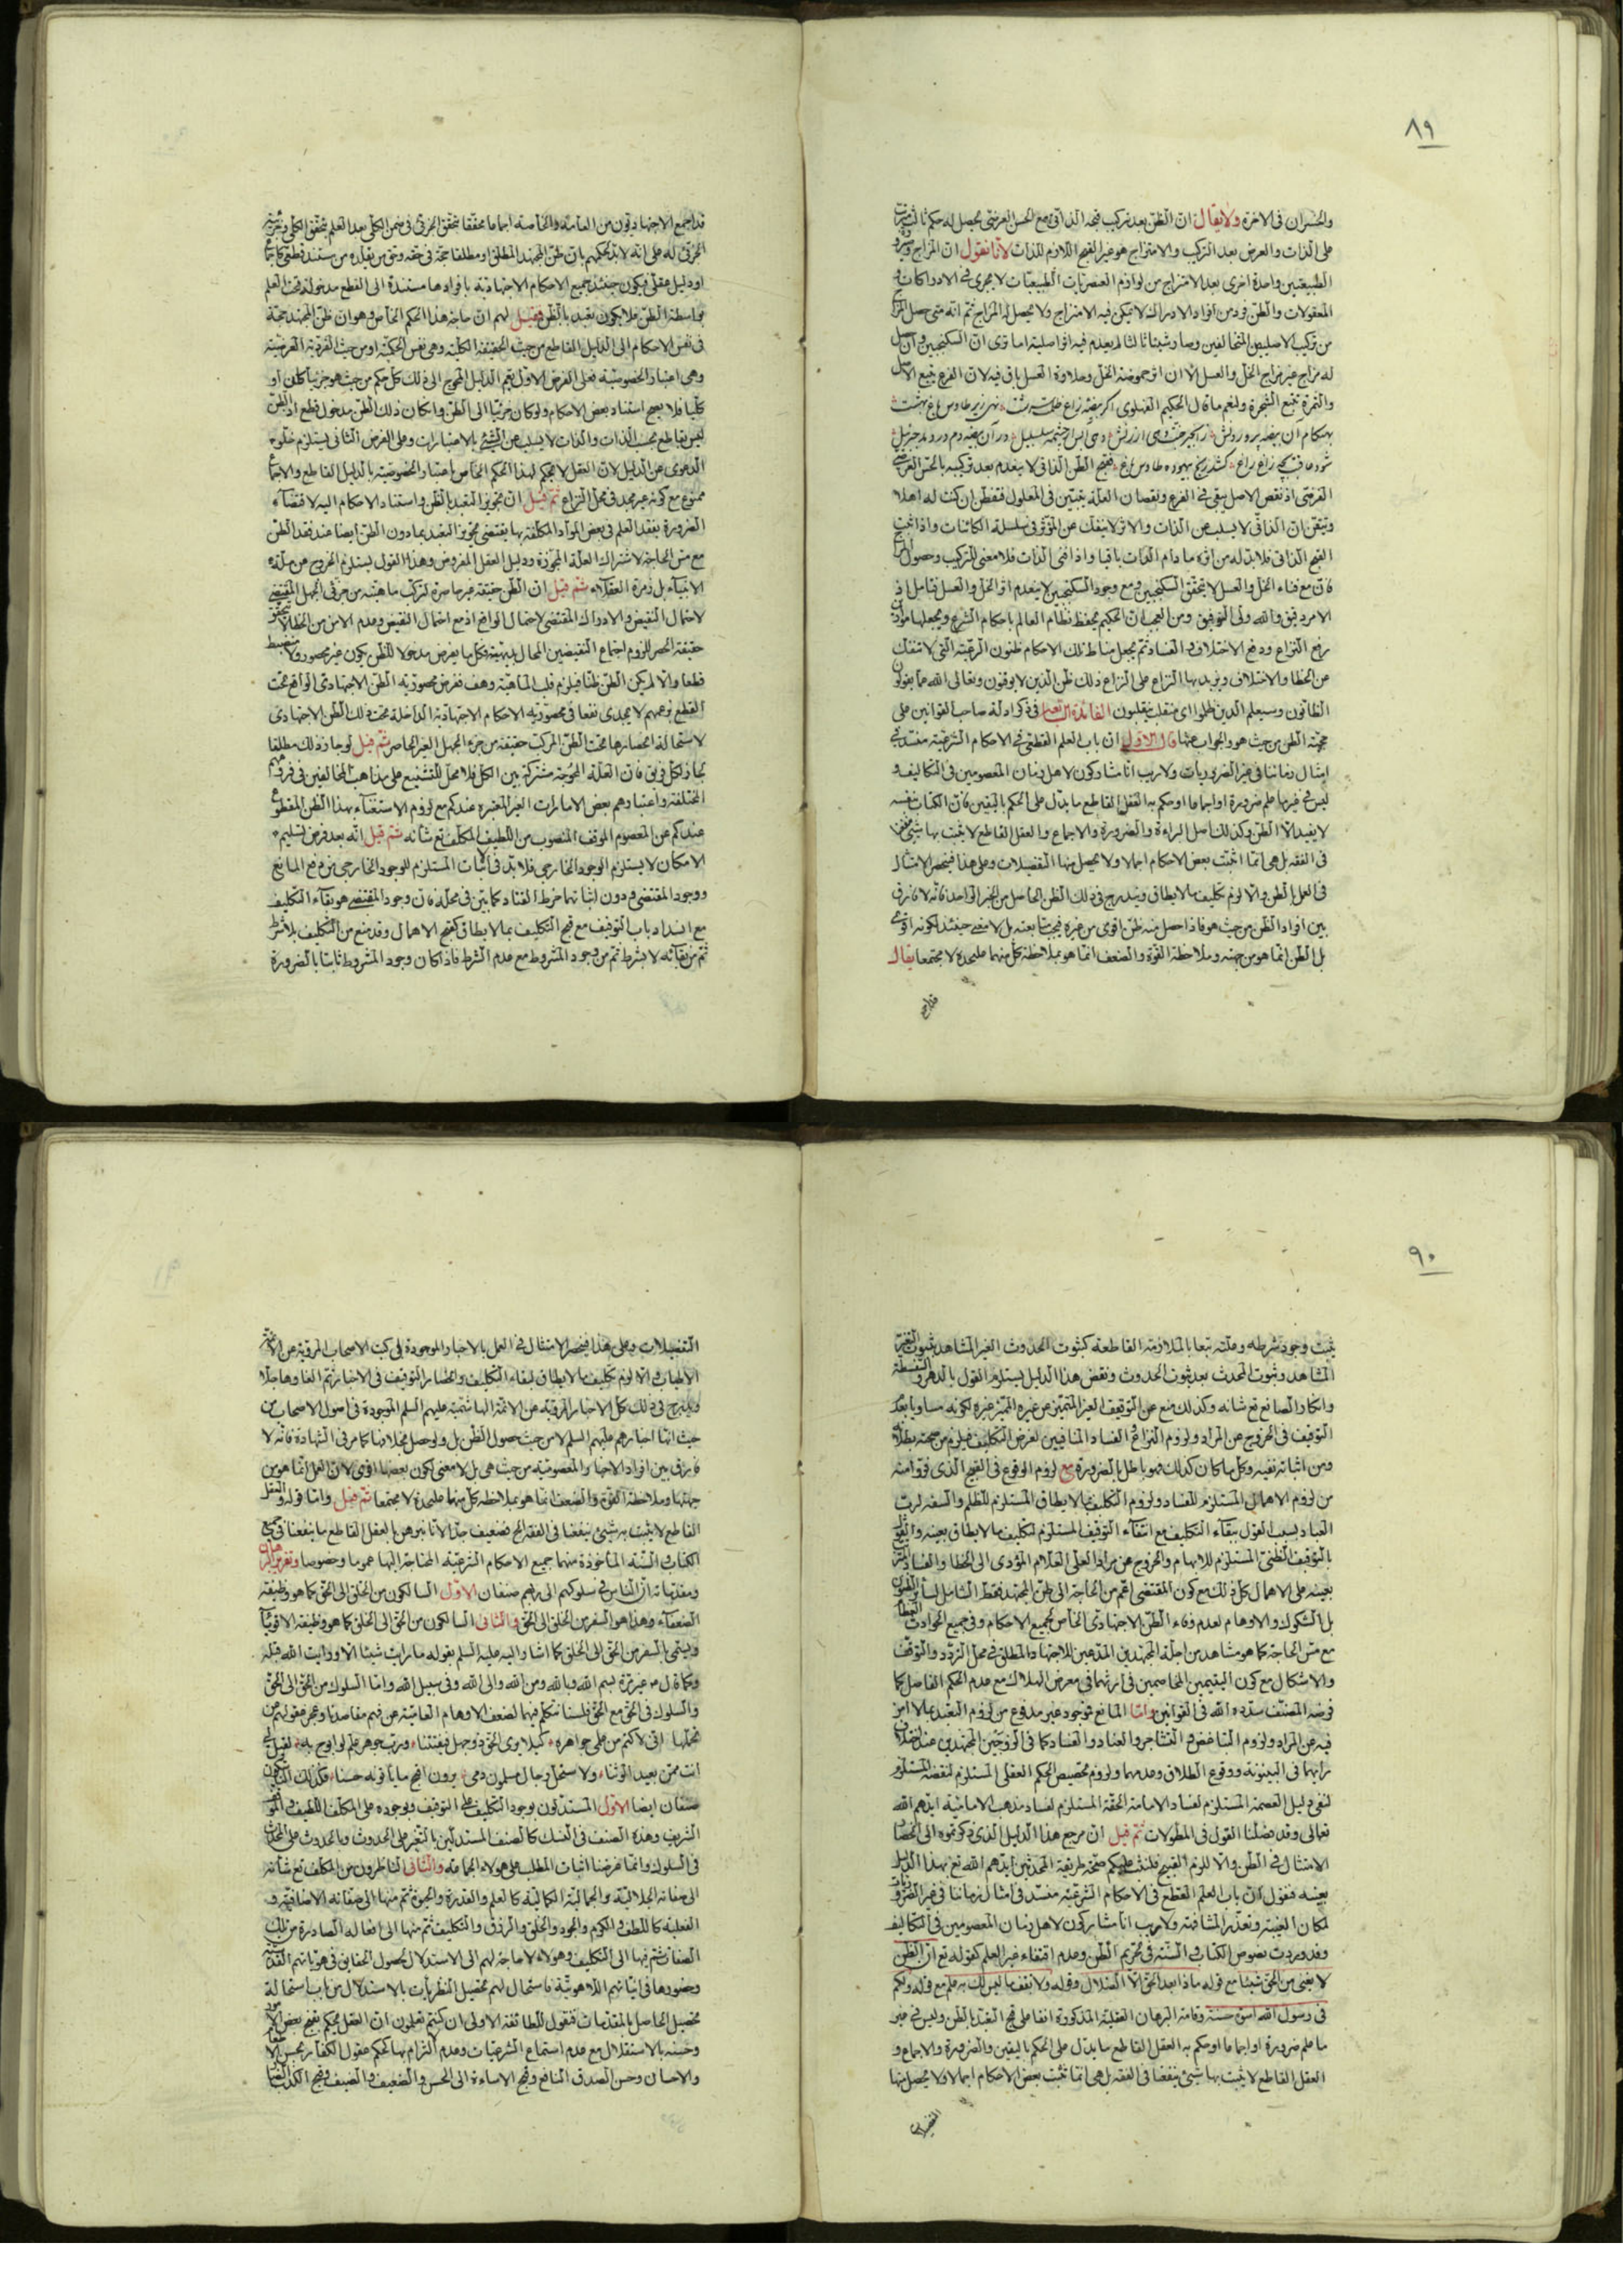 ٨٩
والخسران فى الاخرة ولا يقال ان الظن بعد تركيب قبحه الذاتى مع الحسن العرضى يحصل له حكم ثالث
على الذات والعرض بعد التركيب والامتزاج هو غير القبح اللازم للذات لانا نقول ان المزاج
الطبيعتين واحدة اخرى بعد الامتزاج من لوازم العنصريات الطبيعيات لا يجرى فى الادراكات و
المعقولات والظن فرد من افراد الادراك لا يمكن فيه الامتزاج ولا يحصل له المزاج ثم انه متى حصل
من تركيب الاصليين المتخالفين وصار شيئا ثالثا لم يعدم فيه اثر اصليته اما ترى ان السكنجبين وان حصل
له مزاج غير مزاج الخل والعسل الا ان اثر حموضة الخل وحلاوة العسل باق فيه لان الفرع يتبع الاصل
والثمرة تتبع الشجرة ولنعم ما قال الحكيم الغزنوى اكر بيضه زاغ ظلمت سرشت نهى زير طاوس باغ بهشت
بهنكام آن بيضه پروردنش ز انجير جنت دهى ارزنش دهى آبش از چشمه سلسبيل در آن بيضه دم در دمد جبرئيل
شود عاقبت بچه زاغ زاغ كشد رنج بيهوده طاوس باغ فقبح الظن الذاتى لا ينعدم بعد تركيبه بالحسن العرضى
الفرضى اذ نقص الاصل يبقى فى الفرع ونقصان العلة يتبين فى المعلول فتفطن ان كنت له اهلا
وتيقن ان الذاتى لا يسلب عن الذات والاثر لا ينفك عن المؤثر فى سلسلة الكائنات واذا ثبت
القبح الذاتى فلا بد له من اثره ما دام الذات باقيا واذا فنى الذات فلا معنى للتركيب وحصول
فان مع فناء الخل والعسل لا يتحقق السكنجبين ومع وجود السكنجبين لا ينعدم اثر الخل والعسل فتامل اذ
الامر دقيق والله ولى التوفيق ومن العجب ان الحكيم يحفظ نظام العالم باحكام الشرع ويجعلها
رفع النزاع ودفع الاختلاف والفساد ثم يجعل مناط تلك الاحكام ظنون الرعية التى لا تنفك
عن الخطا والاختلاف ويزيد بها النزاع على النزاع ذلك ظن الذين لا يوقنون وتعالى الله عما يقول
الظانون وسيعلم الذين ظلموا اى منقلب ينقلبون الفائدة فى ذكر ادلة صاحب القوانين على
حجية الظن من حيث هو والجواب عنها قال الاول ان باب العلم القطعى فى الاحكام الشرعية منسد فى
امثال زماننا فى غير الضروريات ولا ريب انا مشاركون لاهل زمان المعصومين فى التكاليف و
ليس فى غيرها علم ضرورة او اجماعا او حكم به العقل القاطع ما يدل على الحكم باليقين فان الكتاب بنفسه
لا يفيد الا الظن وكذلك اصل البراءة والضرورة والاجماع والعقل القاطع لا يثبت بها شئ
فى الفقه بل هى انما اثبتت بعض الاحكام اجمالا ولا يحصل منها التفصيلات وعلى هذا فينحصر الامتثال
فى العمل بالظن والا لزم تكليف ما لا يطاق ويندرج فى ذلك الظن الحاصل من الخبر الواحد فانه لا فارق
بين افراد الظن من حيث هو فاذا حصل منه ظن اقوى من غيره فيجب متابعته بل لا معنى حينئذ لكونه اقوى
بل الظن انما هو من جهته وملاحظة القوة والضعف انما هو بملاحظة كل منهما عليحدة لا مجتمعا يقال
قد اجمع الاجتهاديون من العامة والخاصة اجماعا محققا تحقق الجزئى فى ضمن الكلى بعد العلم بتحقق الكلى
الجزئى له على انه لا بد لحكمهم بان ظن المجتهد المطلق او مطلقا حجة فى حقه وحق من يقلده من مستند قطعى كاجماع
او دليل عقلى فيكون حينئذ جميع الاحكام الاجتهادية بافرادها مستندة الى القطع مدخولة تحت العلم
بواسطة الظن فلا يكون تعبد بالظن فقيل لهم ان حاجة هذا الحكم الخاص وهو ان ظن المجتهد حجة
فى نفس الاحكام الى الدليل القاطع من حيث الحقيقة الكلية وهى نفس الحكمية او من حيث الفردية العرضية
وهى اعتبار الخصوصية فعلى الفرض الاول يعم الدليل المحوج الى ذلك كل حكم من حيث هو جزئيا كان او
كليا فلا يصح استناد بعض الاحكام ولو كان جزئيا الى الظن وان كان ذلك الظن مدخول قطع اذ الظن
ليس بقاطع بحسب الذات والذات لا يسلب عن الشئ بالاعتبارات وعلى الفرض الثانى يستلزم خلو
الدعوى عن الدليل لان العقل لا يحكم لهذا الحكم الخاص باعتبار الخصوصية بالدليل القاطع والاجماع
ممنوع مع كونه غير مجد فى محل النزاع ثم قيل ان تجويز التعبد بالظن واستناد الاحكام اليه لاقتضاء
الضرورة بفقد العلم فى بعض المواد المكلفة بها يقتضى تجويز التعبد بما دون الظن ايضا عند فقد الظن
مع مس الحاجة لاشتراك العلة المجوزة ودليل العقل المفروض وهذا القول يستلزم الخروج عن ملة
الانبياء بل زمرة العقلاء ثم قيل ان الظن حقيقة غير حاصرة لتركب ماهيته من جزئى الجهل المقتضى
لاحتمال النقيض والادراك المقتضى لاحتمال الواقع اذ مع احتمال النقيض وعدم الامن من الخطا لا يتحقق
حقيقة الحصر للزوم اجتماع النقيضين المحال بديهية فكل ما يفرض مدخولا للظن يكون غير محصور ولا منضبط
قطعا والا لم يكن الظن ظنا فيلزم قلب الماهية وهف ففرض محصورية الظن الاجتهادى الواقع تحت
القطع بزعمهم لا يجدى نفعا فى محصورية الاحكام الاجتهادية الداخلة تحت ذلك الظن الاجتهادى
لاستحالة انحصارها تحت الظن المركب حقيقة من جزء الجهل الغير الحاصر ثم قيل لو جاز ذلك مطلقا
لجاز لكل فريق فان العلة المحوجة مشتركة بين الكل فلا محل للتشنيع على مذاهب المخالفين فى فروعهم
المختلفة واعتبادهم بعض الامارات الغير المعتبرة عندكم مع لزوم الاستغناء بهذا الظن المقطوع
عندكم عن المعصوم الموقف المنصوب من اللطيف المكلف تع شأنه ثم قيل انه بعد فرض تسليم
الامكان لا يستلزم الوجود الخارجى فلا بد فى اثبات المستلزم للوجود الخارجى من رفع المانع
ووجود المقتضى ودون اثباتهما خرط القتاد كما بين فى محله فان وجود المقتضى هو بقاء التكليف
مع انسداد باب التوقيف مع قبح التكليف بما لا يطاق كقبح الاهمال وقد منع من التكليف بلا شرط
ثم من بقائه لا بشرط ثم من وجود المشروط مع عدم الشرط فاذا كان وجود المشروط ثابتا بالضرورة
٩٠
يثبت وجود شرطه وعلته تبعا بالملازمة القاطعة كثبوت الحدوث الغير المشاهد بثبوت التغير
المشاهد وثبوت المحدث بعد ثبوت الحدوث ونقض هذا الدليل يستلزم القول بالدهر والسفسطة
وانكار الصانع تع شانه وكذلك منع عن التوقيف الغير المتميز عن غيره لكونه مساويا بعد
التوقيف فى الخروج عن المراد ولزوم النزاع والفساد المنافيين لغرض التكليف فيلزم من صحته بطلانه
ومن اثباته نفيه وكل ما كان كذلك فهو باطل بالضرورة مع لزوم الوقوع فى القبح الذى فروا منه
من لزوم الاهمال المستلزم للفساد ولزوم التكليف بما لا يطاق المستلزم للظلم والسفه لرب
العباد بسبب القول ببقاء التكليف مع انتفاء التوقيف المستلزم لتكليف ما لا يطاق بعينه والقول
بالتوقيف الظنى المستلزم للابهام والخروج عن مراد العلى العلام المؤدى الى الخطا والفساد
بعينه على الاهمال كل ذلك مع كون المقتضى اعم من الحاجة الى ظن المجتهد فقط الشامل لسائر الظنون
بل الشكوك والاوهام لعدم وفاء الظن الاجتهادى الخاص لجميع الاحكام وفى جميع الحوادث
مع مس الحاجة كما هو مشاهد من اجلة المجتهدين المدعين للاجتهاد المطلق فى محل التردد والتوقف
والاشكال مع كون اليتيمين المخاصمين فى ارثهما فى معرض الهلاك مع عدم الحكم الفاصل كما
فرضه المصنف سدده الله فى القوانين واما المانع فوجود غير مدفوع من لزوم التعبد بما لا امن
فيه عن المراد ولزوم التباغض والتشاجر والعناد والفساد كما فى الزوجين المجتهدين عند اختلاف
رايهما فى البينونة ووقوع الطلاق وعدمهما ولزوم تخصيص الحكم العقلى المستلزم لنقضه المستلزم
لنفى دليل العصمة المستلزم لفساد الامامة الحقة المستلزم لفساد مذهب الامامية ايدهم الله
تعالى وقد فصلنا القول فى المطولات ثم قيل ان مرجع هذا الدليل الذى ذكرتموه الى انحصار
الامتثال فى الظن والا للزم القبيح فلنثبت عليكم صحة طريقة المحدثين ايدهم الله تع بهذا الدليل
بعينه فنقول ان باب العلم القطع فى الاحكام الشرعية منسد فى امثال زماننا فى غير الضروريات
لمكان الغيبة وتعذر المشافهة ولا ريب انا مشاركون لاهل زمان المعصومين فى التكاليف
وقد وردت نصوص الكتاب والسنة فى تحريم الظن وعدم اقتفاء غير العلم كقوله تع ان الظن
لا يغنى من الحق شيئا مع قوله ماذا بعد الحق الا الضلال وقوله ولا تقف ما ليس لك به علم مع قوله ولكم
فى رسول الله اسوة حسنة وقامت البرهان العقلية المذكورة انفا على قبح التعبد بالظن وليس فى غير
ما علم ضرورة او اجماعا او حكم به العقل القاطع ما يدل على الحكم باليقين والضرورة والاجماع و
العقل القاطع لا يثبت بها شئ ينفعنا فى الفقه بل هى انما تثبت بعض الاحكام اجمالا ولا يحصل منها
التفصيلات وعلى هذا فينحصر الامتثال فى العمل بالاخبار الموجودة فى كتب الاصحاب المروية عن الائمة
الاطياب والا لزم تكليف ما لا يطاق لبقاء التكليف وانحصار التوقيف فى الاخبار ثم الغاوها جلا
ويندرج فى ذلك كل الاخبار المروية عن الائمة الهاشمية عليهم السلم الموجودة فى اصول الاصحاب من
حيث انها اخبارهم عليهم السلم لا من حيث حصول الظن بل ولو حصل بخلافها كما مر فى الشهادة فانه لا
فارق بين افراد الاخبار المعصومية من حيث هى بل لا معنى لكون بعضها اقوى لان العمل انما هو من
جهتها وملاحظة القوة والضعف انما هو بملاحظة كل منهما عليحدة لا مجتمعا ثم قيل واما قوله والعقل
القاطع لا يثبت به شئ ينفعنا فى الفقه الخ فضعيف جدا لانا نبرهن بالعقل القاطع ما ينفعنا فى جميع
الكتاب والسنة الماخوذة منهما جميع الاحكام الشرعية المحتاجة اليها عموما وخصوصا وتقرير البرهان
ومقدماته ان الناس فى سلوكهم الى ربهم صنفان الاول السالكون من الخلق الى الحق كما هو وظيفة
الضعفاء وهذا هو السفر من الخلق الى الحق والثانى السالكون من الحق الى الخلق كما هو وظيفة الاقوياء
ويسمى بالسفر من الحق الى الخلق كما اشار اليه عليه السلم بقوله ما رايت شيئا الا ورايت الله قبله
وكما قال بسم الله وبالله ومن الله والى الله وفى سبيل الله واما السلوك من الحق الى الحق
والسلوك فى الحق مع الحق فلسنا نتكلم فيهما لضعف الاوهام العامية عن فهم مقاصدنا وعجز عقولهم عن
تحملها انى لاكتم من علمى جواهره كيلا يرى الحق ذو جهل فيفتتنا ورب جوهر علم لو ابوح به لقيل لى
انت ممن يعبد الوثنا ولا ستحل رجال مسلمون دمى يرون اقبح ما ياتونه حسنا فكذلك السالكون
صنفان ايضا الاول المستدلون بوجود التكليف على التوقيف وبوجوده على المكلف اللطيف
الشريف وهذه الصنف فى النسك كالصنف المستدلين بالتغير على الحدوث وبالحدوث على المحدث
فى السلوك وانما غرضنا اثبات المطلب على هولاء الجماعة والثانى الناظرون من المكلف تع شأنه
الى صفاته الجلالية والجمالية الكمالية كالعلم والقدرة والحيوة ثم منها الى صفاته الاضافية و
الفعلية كاللطف والكرم والجود والخلق والرزق والتكليف ثم منها الى افعاله الصادرة من تلك
الصفات ثم فيها الى التكليف وهولاء لا حاجة لهم الى الاستدلال لحصول الحقايق فى هوياتهم القدسية
وحضورها فى انياتهم اللاهوتية فاستحال لهم تحصيل النظريات بالاستدلال من باب استحالة
تحصيل الحاصل بالمقدمات فنقول للطائفة الاولى ان كنتم تعلمون ان العقل يحكم بقبح بعض الامور
وحسنه بالاستقلال مع عدم استماع الشرعيات وعدم التزام بها كحكم عقول الكفار بحسن
والاحسان وحسن الصدق النافع وقبح الاساءة الى المحسن والضعيف والضيف وقبح الكذب